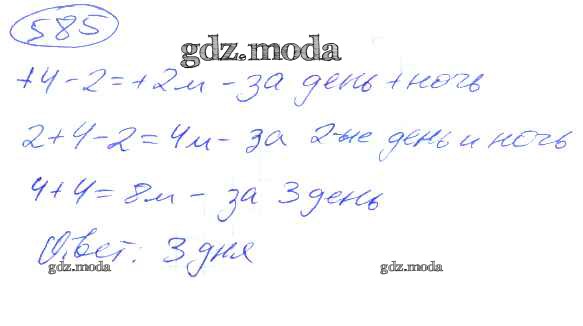 585
gdz.moda
+4-2=+2м - за день + ночь
2+4-2=4м - за 2-ые день и ночь
4+4=8м - за 3 день
Ответ: 3 дня
gdz.moda gdz.moda